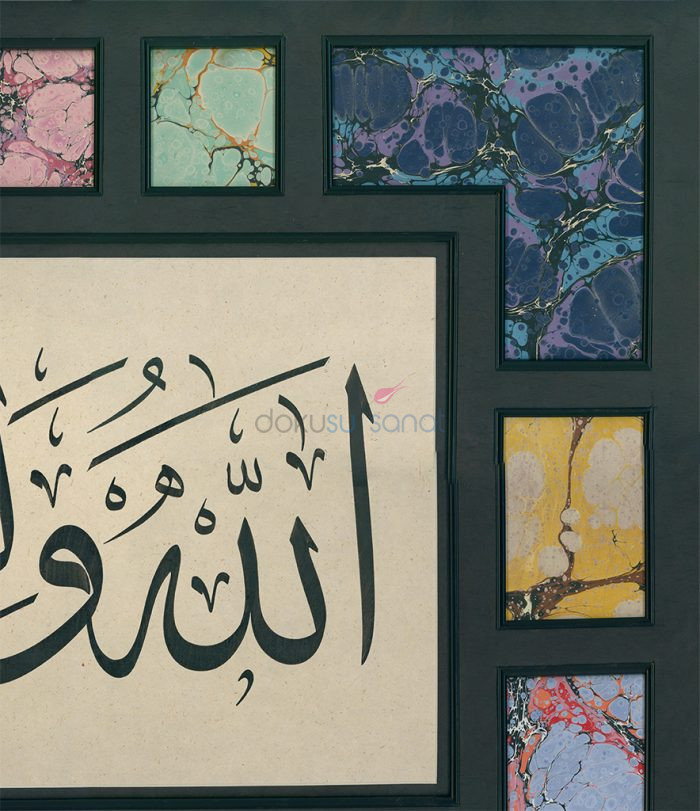 الله و
dokusu sanat